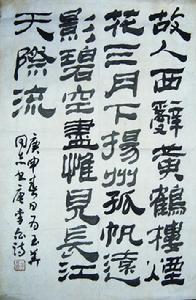 故人西辭黃鶴樓煙
花三月下揚州孤帆遠
影碧空盡惟見長江
天際流
庚申春日为玉
同志书唐李白诗